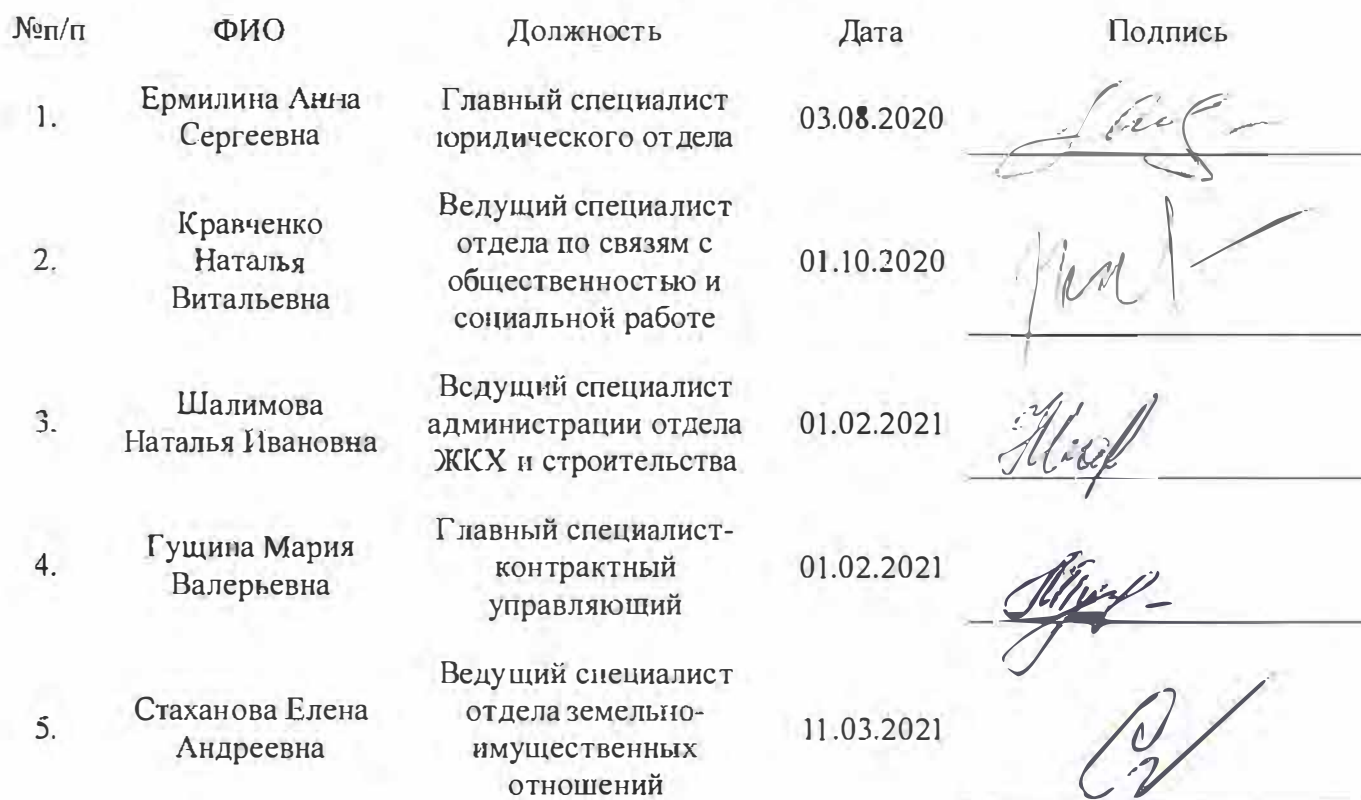 №п/п ФИО Должность Дата Подпись
1. Ермилина Анна Сергеевна Главный специалист юридического отдела 03.08.2020
2. Кравченко Наталья Витальевна Ведущий специалист отдела по связям с общественностью и социальной работе 01.10.2020
3. Шалимова Наталья Ивановна Ведущий специалист администрации отдела ЖКХ и строительства 01.02.2021
4. Гущина Мария Валерьевна Главный специалист-контрактный управляющий 01.02.2021
5. Стаханова Елена Андреевна Ведущий специалист отдела земельно-имущественных отношений 11.03.2021